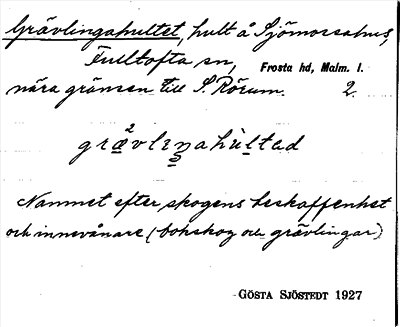 Grävlingahultet, hult å Sjömossahus,
Fulltofta sn, Frosta hd, Malm. l.
nära gränsen till S. Rörum. 2.
græ²vliŋahùltad
Namnet efter skogens beskaffenhet
och innevånare (bokskog och grävlingar)
GÖSTA SJÖSTEDT 1927